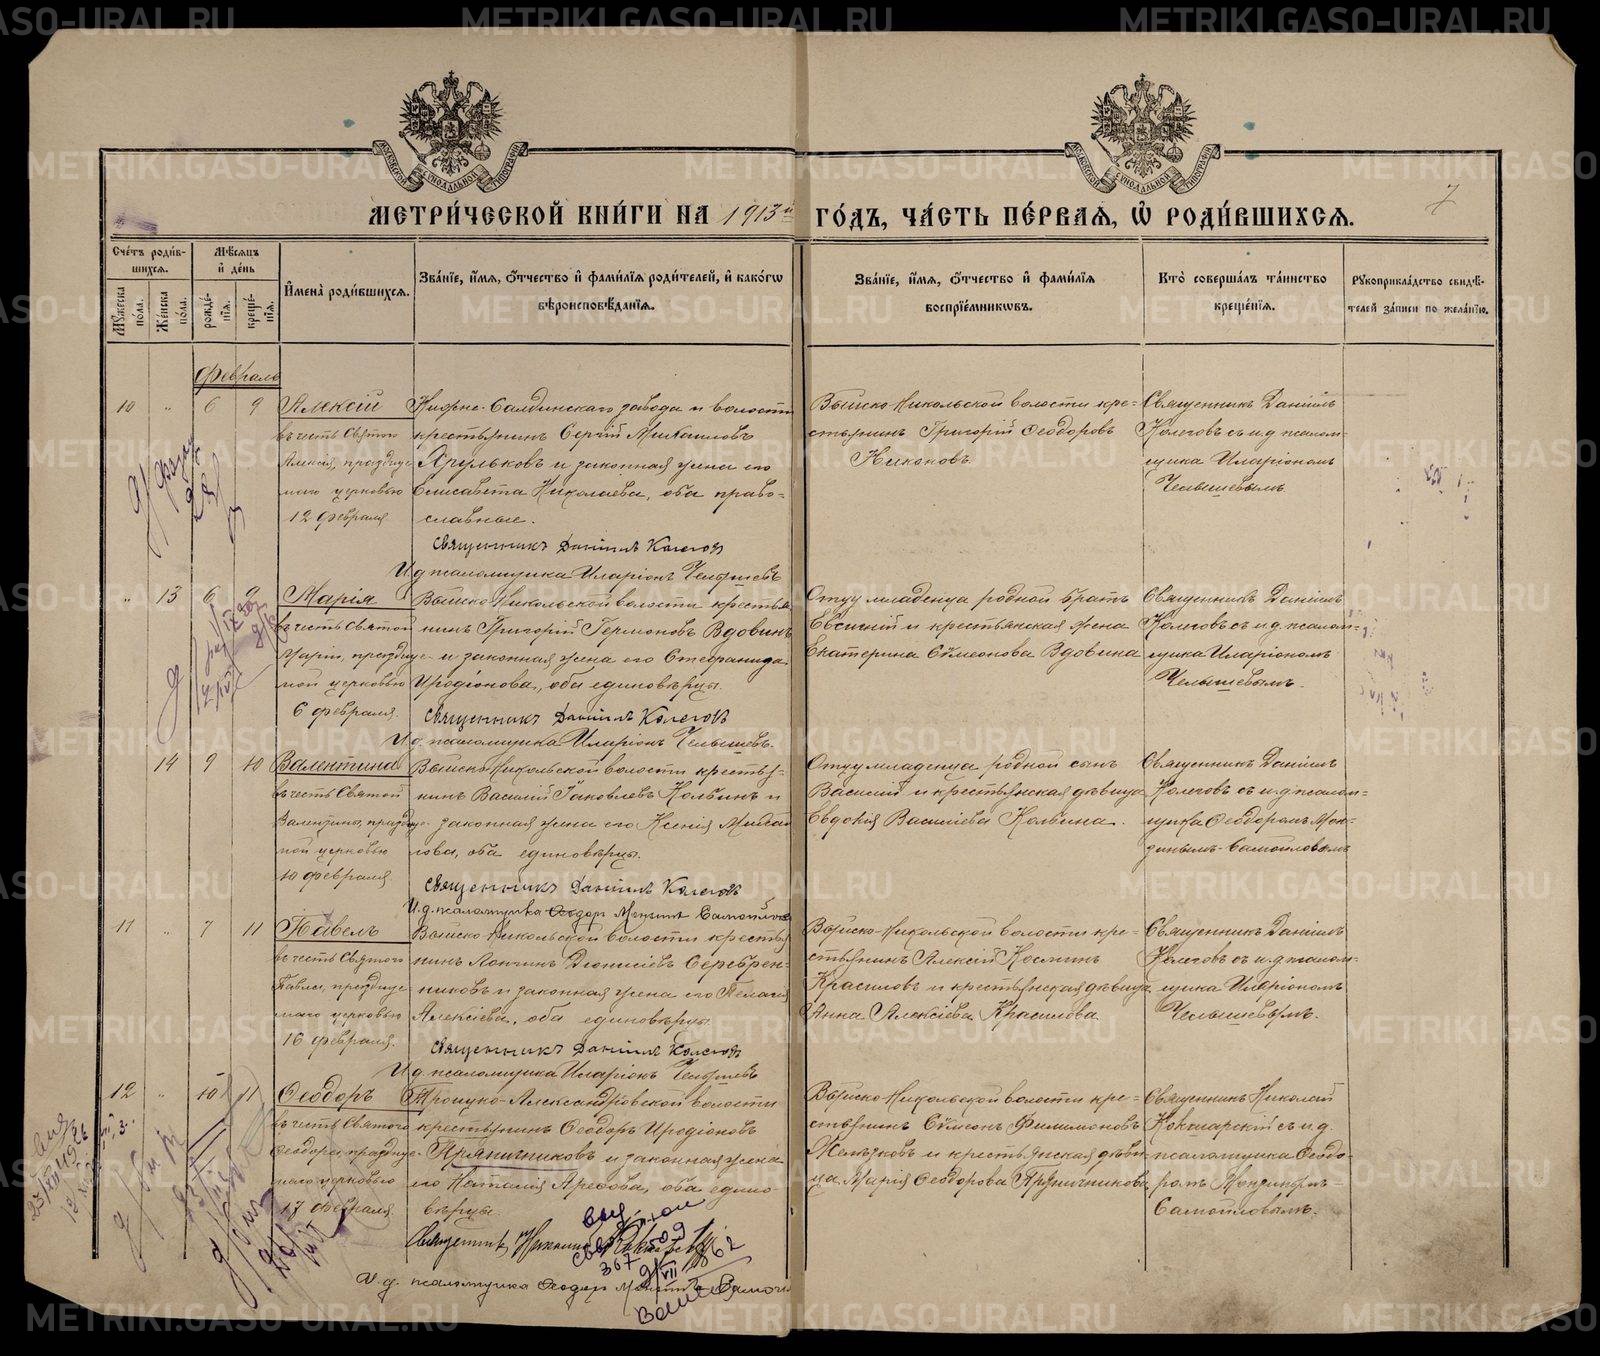 МЕТРИ́ЧЕСКОЙ КНИ́ГИ НА 1913й ГО́ДЪ, ЧА́СТЬ ПЕ́РВАЯ, Ѡ҆ РОДИ́ВШИХСЯ.
7
Сче́тъ роди́в-
шихся.
Му́жеска по́ла.
Же́нска по́ла.
Мѣ́сяцъ
и҆ де́нь
рожде́-
нїя.
креще́-
нїя.
И҆мена̀ роди́вшихся.
Зва́нїе, и҆́мя, ѻ҆́тчество и҆ фами́лїя роди́телей, и҆ како́гѡ
вѣроисповѣ́данїя.
Зва́нїе, и҆́мя, ѻ҆́тчество и҆ фами́лїя
воспрїе́мниковъ.
Кто̀ соверша́лъ та́инство
креще́нїя.
Рꙋкоприкла́дство свидѣ́-
телей за́писи по жела́нїю.
Февраль
10 " 6 9
Алексій
въ честь Святого
Алексія, праздную-
маго церковью
12 февраля
Нижне-Салдинскаго завода и волости
крестьянинъ Сергій Михаиловъ
Ярульковъ и законная жена его
Елисавета Николаева, оба право-
славные.
Священникъ Даніилъ Колеговъ
И.д. псаломщика Иларіонъ Челышевъ
Выйско-Никольской волости кре-
стьянинъ Григорій Феодоровъ
Никоновъ.
Священникъ Даніилъ
Колеговъ съ и.д. псалом-
щика Иларіономъ
Челышевымъ.
" 13 6 9
Марія
въ честь Святой
Маріи, праздную-
мой церковью
6 февраля.
Выйско-Никольской волости крестья-
нинъ Григорій Гермоновъ Вдовинъ
и законная жена его Стефанида
Иродіонова, оба единовѣрцы.
Священникъ Даніилъ Колеговъ
И.д. псаломщика Иларіонъ Челышевъ.
Отцу младенца родной братъ
Евсигній и крестьянская жена
Екатерина Сѵмеонова Вдовина
Священникъ Даніилъ
Колеговъ съ и.д. псалом-
щика Иларіономъ
Челышевымъ.
14 9 10
Валентина
въ честь Святой
Валентины, праздную-
мой церковью
10 февраля
Выйско-Никольской волости крестья-
нинъ Василій Іаковлевъ Колбинъ и
законная жена его Ксенія Михаи-
лова, оба единовѣрцы.
Священникъ Даніилъ Колеговъ
И.д. псаломщика Ѳеодоръ Мокинъ Самойловъ
Отцу младенца родной сынъ
Василій и крестьянская дѣвица
Евдокія Василіева Колбина.
Священникъ Даніилъ
Колеговъ съ и.д. псалом-
щика Ѳеодоромъ Мок-
Самойловымъ
11 " 7 11
Павелъ
въ честь Святого
Павла, праздную-
маго церковью
16 февраля.
Выйско-Никольской волости крестья-
нинъ Лонгинъ Діонисіевъ Серебрен-
никовъ и законная жена его Пелагія
Алексіева, оба единовѣрцы.
Священникъ Даніилъ Колеговъ
И.д. псаломщика Иларіонъ Челышевъ
Выйско-Никольской волости кре-
стьянинъ Алексій Косминъ
Красиловъ и крестьянская дѣвица
Анна Алексіева Красилова.
Священникъ Даніилъ
Колеговъ съ и.д. псалом-
щика Иларіономъ
Челышевымъ.
12 " 10 11
Ѳеодоръ
въ честь Святого
Ѳеодора, праздную-
маго церковью
17 февраля
Троицко-Александровской волости
крестьянинъ Ѳеодоръ Иродіоновъ
Пряничниковъ и законная жена
его Наталія Аресова, оба едино-
вѣрцы.
Священникъ Николай
И.д. псаломщика Ѳеодоръ
Выйско-Никольской волости кре-
стьянинъ Сѵмеонъ Филимоновъ
и крестьянская дѣви-
ца Марія Ѳеодорова Пряничникова
Священникъ Николай
съ и.д.
псаломщика Ѳеодо-
ромъ
Самойловымъ.
МОСКОВСКОЙ СѴНОДАЛЬНОЙ ТИПОГРАФІИ
МОСКОВСКОЙ СѴНОДАЛЬНОЙ ТИПОГРАФІИ
METRIKI.GASO-URAL.RU